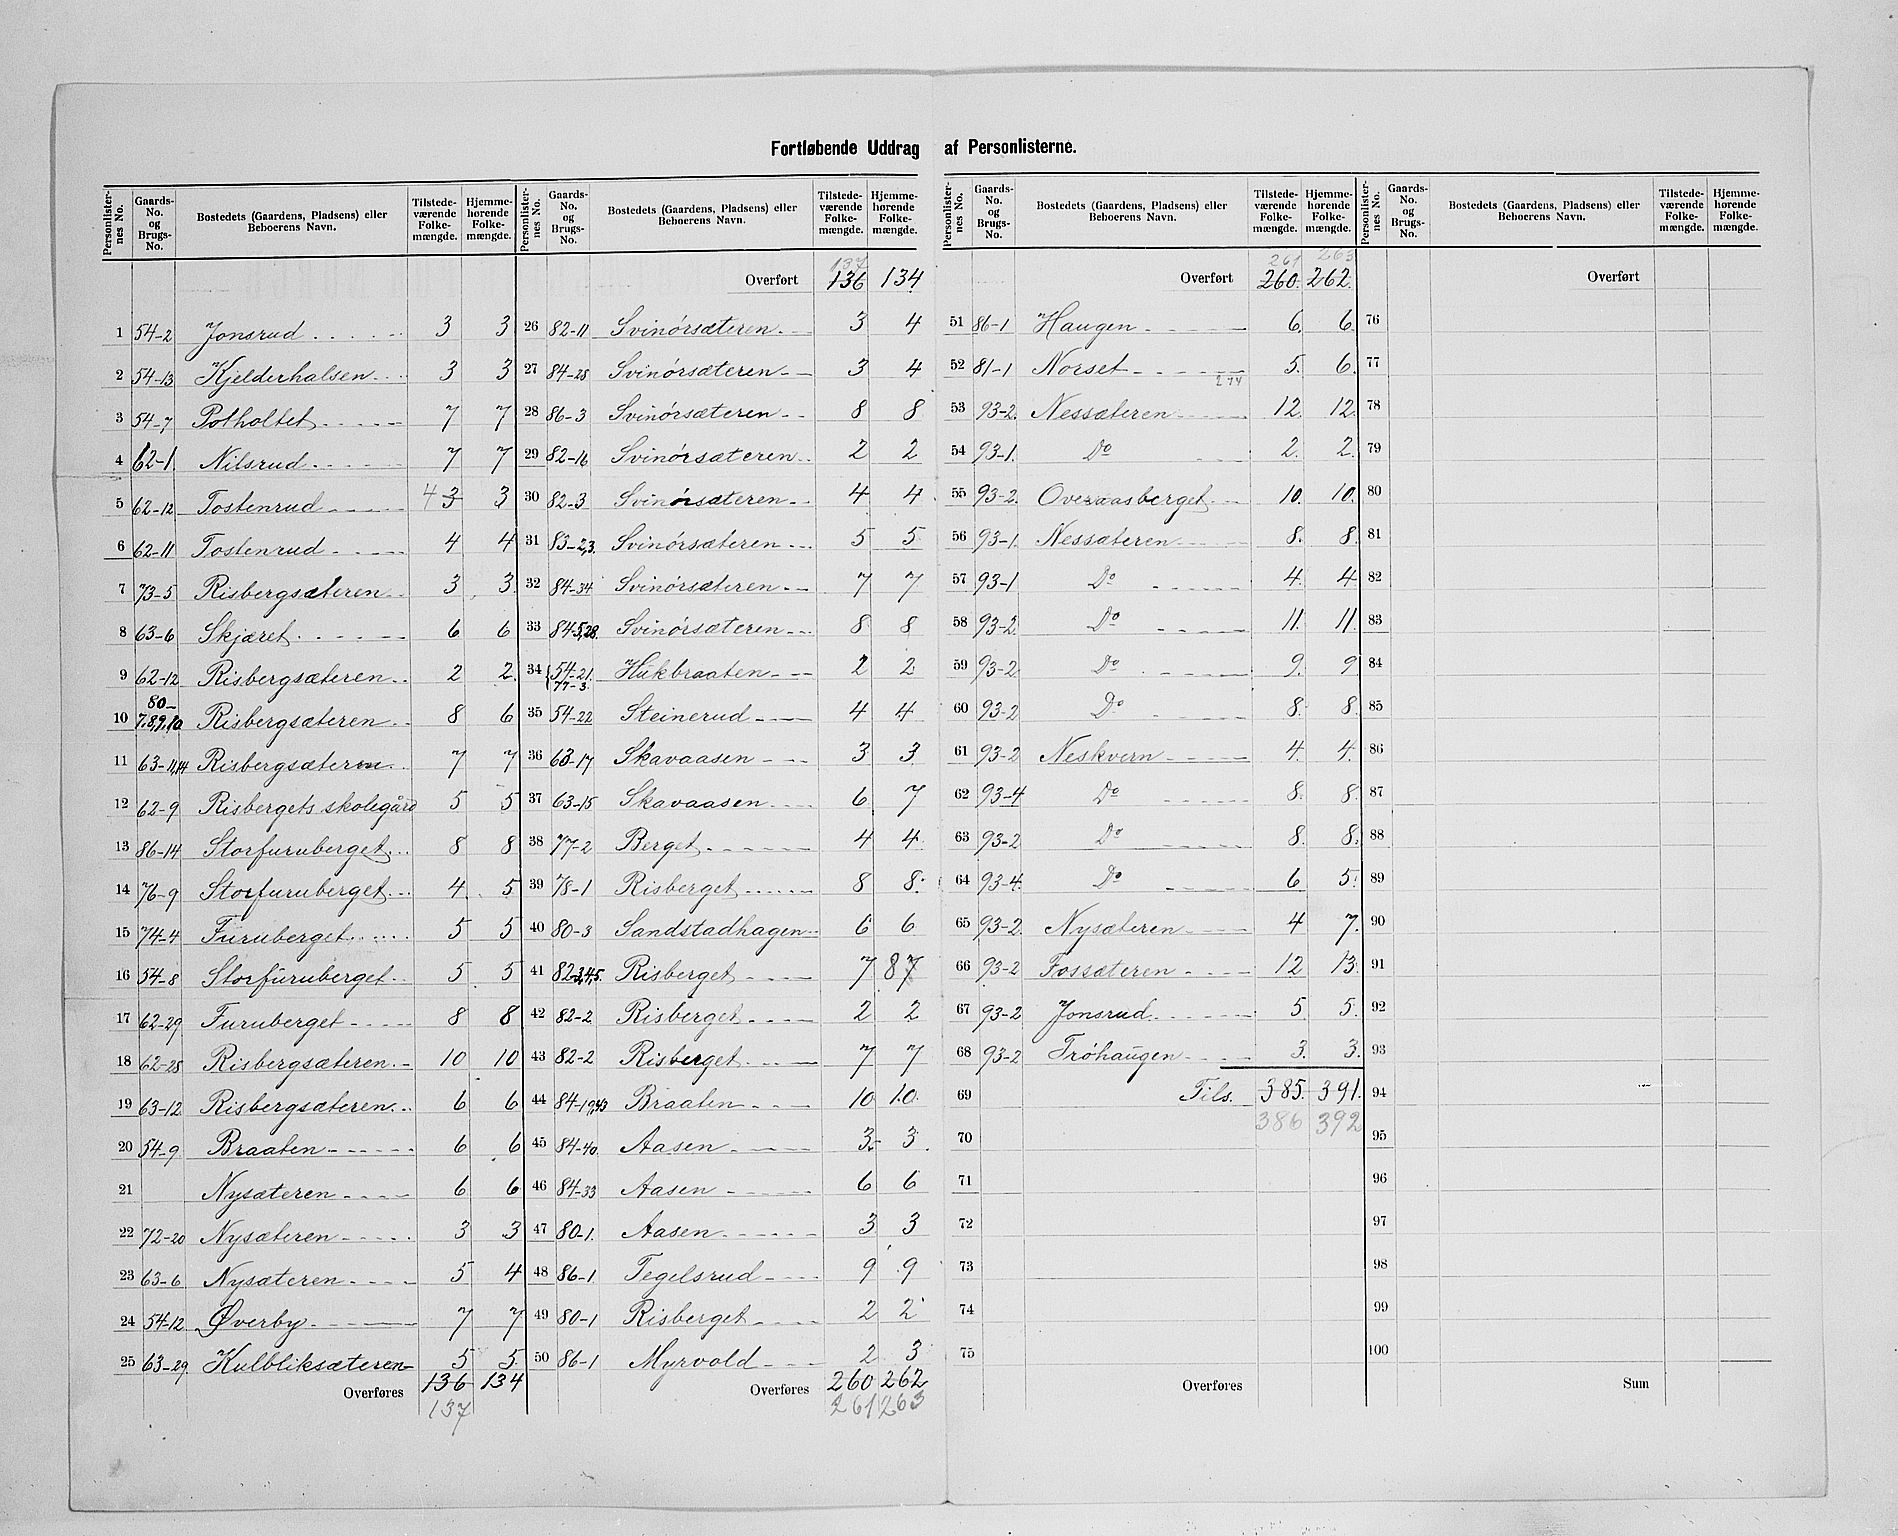 Fortløbende Uddrag af Personlisterne.
Personlister-nes No. | Gaards-No. og Brugs-No. | Bostedets (Gaardens, Pladsens) eller Beboerens Navn. | Tilstede-værende Folke-mængde. | Hjemme-hørende Folke-mængde.
1 54-2 Jonsrud 3 3
2 54-13 Kjelderhalsen 3 3
3 54-7 Potholtet 7 7
4 62-1 Nilsrud 7 7
5 62-12 Tostenrud 4 3 3
6 62-11 Tostenrud 4 4
7 73-5 Risbergsæteren 3 3
8 63-6 Skjæret 6 6
9 62-12 Risbergsæteren 2 2
10 80-7,8,9,10 Risbergsæteren 8 6
11 63-11,14 Risbergsæteren 7 7
12 62-9 Risbergets skolegård 5 5
13 86-14 Storfuruberget 8 8
14 76-9 Storfuruberget 4 5
15 74-4 Furuberget 5 5
16 54-8 Storfuruberget 5 5
17 62-29 Furuberget 8 8
18 62-28 Risbergsæteren 10 10
19 63-12 Risbergsæteren 6 6
20 54-9 Braaten 6 6
21 Nysæteren 6 6
22 72-20 Nysæteren 3 3
23 63-6 Nysæteren 5 4
24 54-12 Øverby 7 7
25 63-29 Kulbliksæteren 5 5
Overføres 136 134
137
Personlister-nes No. | Gaards-No. og Brugs-No. | Bostedets (Gaardens, Pladsens) eller Beboerens Navn. | Tilstede-værende Folke-mængde. | Hjemme-hørende Folke-mængde.
137
Overført 136 134
26 82-11 Svinörsæteren 3 4
27 84-28 Svinörsæteren 3 4
28 86-3 Svinörsæteren 8 8
29 82-16 Svinörsæteren 2 2
30 82-3 Svinörsæteren 4 4
31 83-2,3. Svinörsæteren 5 5
32 84-34 Svinörsæteren 7 7
33 84-5,28. Svinörsæteren 8 8
34 54-21. 77-3. Hukbraaten 2 2
35 54-22 Steinerud 4 4
36 63-17 Skavaasen 3 3
37 63-15 Skavaasen 6 7
38 77-2 Berget 4 4
39 78-1 Risberget 8 8
40 80-3 Sandstadhagen 6 6
41 82-3,4,5. Risberget 7 8 7
42 82-2 Risberget 2 2
43 82-2 Risberget 7 7
44 84-19,43 Braaten 10 10
45 84-40. Aasen 3 3
46 84-33 Aasen 6 6
47 80-1. Aasen 3 3
48 86-1 Tegelsrud 9 9
49 80-1 Risberget 2 2
50 86-1 Myrvold 2 3
Overføres 260 262
261 263
Personlister-nes No. | Gaards-No. og Brugs-No. | Bostedets (Gaardens, Pladsens) eller Beboerens Navn. | Tilstede-værende Folke-mængde. | Hjemme-hørende Folke-mængde.
261 263
Overført 260. 262.
51 86-1 Haugen 6. 6.
52 81-1 Norset 5. 6.
274
53 93-2. Nessæteren 12. 12.
54 93-1. Do 2. 2.
55 93-2. Overaasberget 10. 10.
56 93-1. Nessæteren 8. 8.
57 93-1 Do 4. 4
58 93-2. Do 11. 11.
59 93-2 Do 9. 9
60 93-2 Do 8. 8.
61 93-2 Neskvern 4. 4.
62 93-4 Do 8. 8.
63 93-2 Do 8. 8.
64 93-4. Do 6 5.
65 93-2. Nysæteren 4 7.
66 93-2 Fossæteren 12 13.
67 93-2 Jonsrud 5. 5.
68 93-2 Tröhaugen 3. 3.
69 Tils. 385. 391.
386 392
70
71
72
73
74
75
Overføres
Personlister-nes No. | Gaards-No. og Brugs-No. | Bostedets (Gaardens, Pladsens) eller Beboerens Navn. | Tilstede-værende Folke-mængde. | Hjemme-hørende Folke-mængde.
Overført
76
77
78
79
80
81
82
83
84
85
86
87
88
89
90
91
92
93
94
95
96
97
98
99
100
Sum